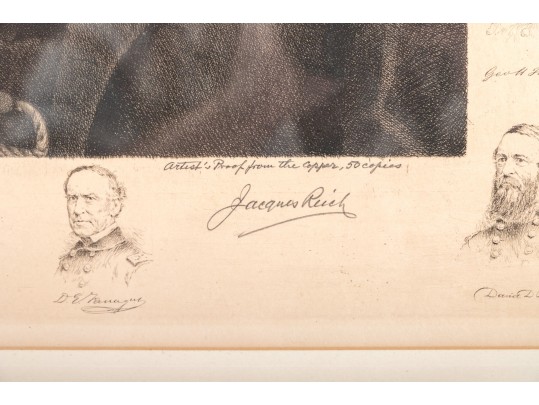 Geo H
Artist's Proof from the Copper, 50 copies
Jacques Reich
D. G. Farragut
David D.